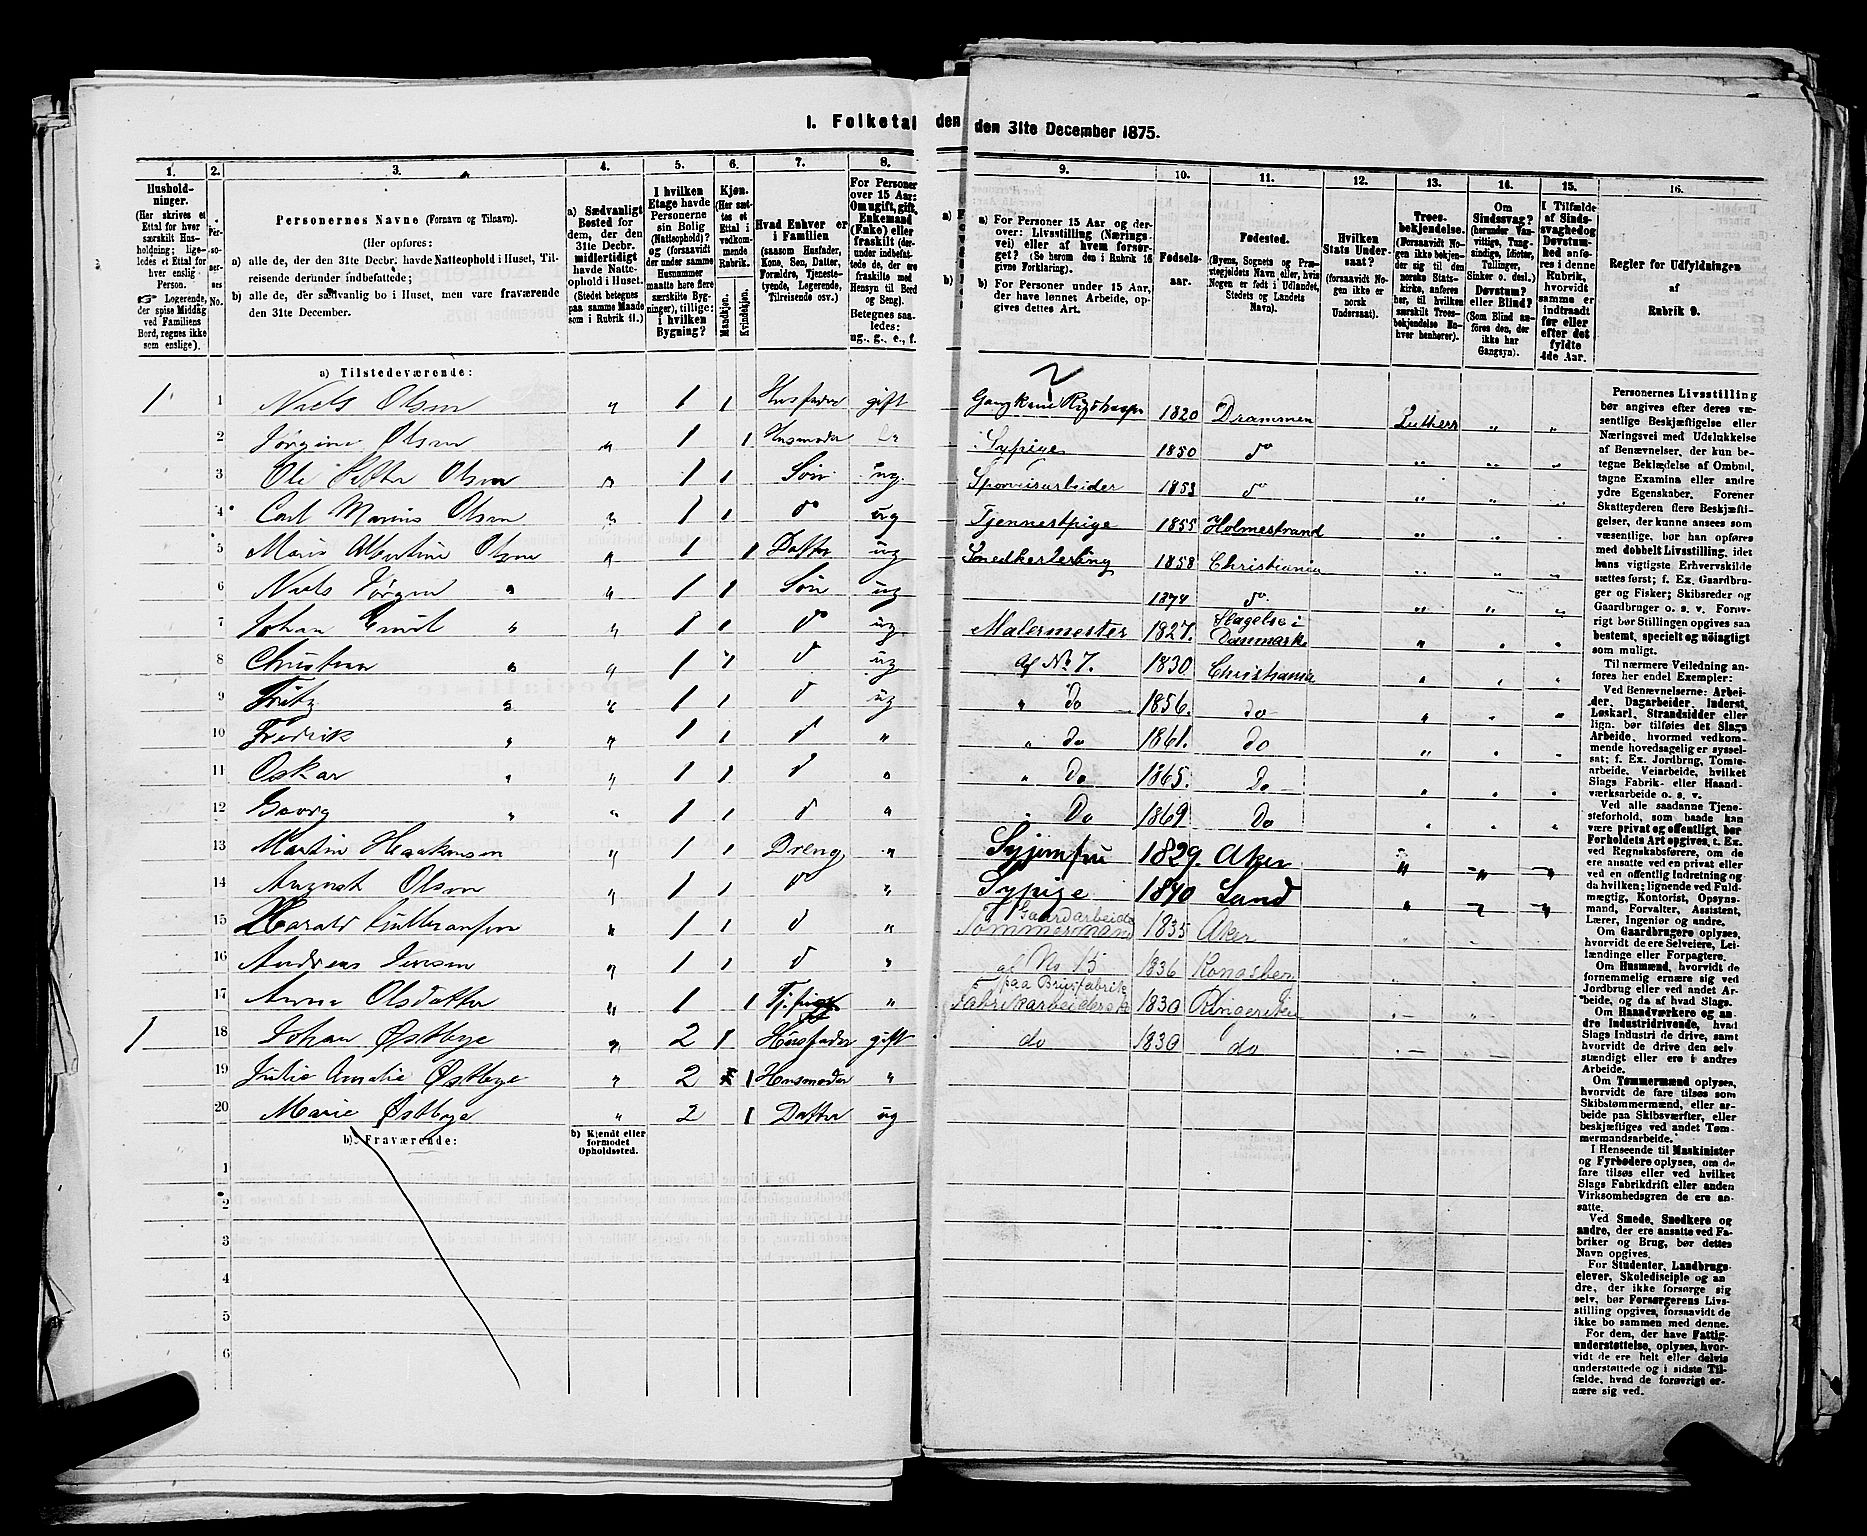 I. Folketal den
den 31te December 1875.
1.
2.
3.
4.
5.
6.
7.
8.
Husholdninger.
(Her skrives et
Ettal for hver
særskilt Husholdning;
ligeledes et Ettal for
hver enslig
Person.
Logerende,
der spise Middag
ved Familiens
Bord, regnes ikke
som enslige).
Personernes No.
Personernes Navne (Fornavn og Tilnavn).
(Her opføres:
a) alle de, der den 31te Decbr. havde Natteophold i Huset, Tilreisende derunder indbefattede;
b) alle de, der sædvanlig bo i Huset, men vare fraværende
den 31te December.
a) Sædvanligt
Bosted for
dem, der den
31te Decbr.
midlertidigt
havde Natteophold i Huset.
(Stedet betegnes
paa samme Maade
som i Rubrik 11.)
I hvilken
Etage havde
Personerne
sin Bolig
(Natteophold)?
og (forsaavidt
der under samme
Husnummer
maatte høre flere
særskilte Bygninger), tillige:
i hvilken
Bygning?
Kjøn.
(Her sættes et
Ettal i
vedkommende
Rubrik.
Mandkjøn.
Kvindekjøn.
Hvad Enhver er
i Familien
(saasom Husfader,
Kone, Søn, Datter,
Forældre, Tjenestetyende, Logerende,
Tilreisende osv.)
For Personer
over 15 Aar:
Om ugift, gift,
Enkemand
(Enke) eller
fraskilt (derunder indbefattede de, der ere
fraskilte med
Hensyn til Bord
og Seng).
Betegnes saaledes:
ug., g., e., f.
a) Tilstedeværende:
1 1 Niels Olsen „ 1 1 Husfader gift
2 Jørgine Olsen „ 1 1 Husmoder
3 Ole Petter Olsen „ 1 1 Søn ug.
4 Carl Marius Olsen „ 1 1 do ug
5 Maris Albertine Olsen „ 1 1 Datter ug
6 Niels Jørgen „ „ 1 1 Søn ug
7 Johan Emil „ „ 1 1 do ug
8 Christian „ „ 1 1 do ug
9 Fritz „ „ 1 1 do ug
10 Fredrik „ „ 1 1 do „
11 Oskar „ „ 1 1 do „
12 Georg „ „ 1 1 do „
13 Martin Haakensen „ 1 1 Dreng „
14 August Olsen „ 1 1 do „
15 Harald „ 1 1 do „
16 Andreas Jensen „ 1 1 do „
17 Anne Olsdatter „ 1 1 Tjpige „
1 18 Johan Østbye „ 2 1 Husfader gift
19 Julie Amalie Østbye „ 2 1 Husmoder „
20 Marie Østbye „ 2 1 Datter ug
b) Fraværende:
b) Kjendt eller
formodet
Opholdssted.
1
2
3
4
5
6
9.
10.
11.
12.
13.
14.
15.
16.
a) For Personer 15 Aar og derover: Livsstilling (Næringsvei) eller af hvem forsørget? (Se herom den i Rubrik 16
givne Forklaring).
b) For Personer under 15 Aar,
der have lønnet Arbeide, opgives dettes Art.
Fødselsaar.
Fødested.
(Byens, Sognets og Præstegjeldets Navn, eller, hvis
Nogen er født i Udlandet,
Stedets og Landets
Navn).
Hvilken
Stats Undersaat?
(forsaavidt
Nogen ikke er
norsk
Undersaat).
Troesbekjendelse.
(Forsaavidt Nogen ikke bekjender sig til den
norske Statskirke, anføres
her, til hvilken
særskilt Troesbekjendelse Enhver henhører).
Om
Sindssvag?
(herunder Vanvittige, Tungsindige, Idioter,
Tullinger,
Sinker o. desl.)
Døvstum?
eller Blind?
(Som Blind anføres den, der
ikke har
Gangsyn).
I Tilfælde
af Sindssvaghed og
Døvstumhed anføres i denne
Rubrik,
hvorvidt
samme er
indtraadt
før eller
efter det
fyldte
4de Aar.
Regler for Udfyldningen
af
Rubrik 9.
1820 Drammen Luthers „ „
Sypige 1850 do „ „ „
arbeider 1853 do „ „ „
Tjennestpige 1855 Holmestrand „ „ „
Snedkerlerling 1858 Christiania „ „ „
1874 do „ „ „
Malermester 1827. Slagelse i Danmark „ „ „
af No 7. 1830. Christiania „ „ „
„ do 1856. do „ „ „
„ do 1861. do „ „ „
„ Do 1865. Do „ „ „
„ Do 1869. Do „ „ „
Syjomfru 1829. Aker „ „ „
Sypige 1840 Land „ „ „
Gaardarbeide
Tømmermand 1835 Aker
af No 15 1836 Kongsber
paa Brusfabrik
Fabrikarbeiderske 1830 Ringerike
do 1830 do
Personernes Livsstilling
bør angives efter deres væsentlige Beskjæftigelse eller
Næringsvei med Udelukkelse
af Benævnelser, der kun betegne Beklædelse af Ombud,
tagne Examina eller andre
ydre Egenskaber. Forener
Skatteyderen flere Beskjæftigelser, der kunne ansees som
væsentlige, bør han opføres
med dobbelt Livsstilling, idet
hans vigtigste Erhvervskilde
sættes først; f. Ex. Gaardbruger og Fisker; Skibsreder og
Gaardbruger o. s. v. Forøvrigt bør Stillingen opgives saa
bestemt, specielt og nøiagtigt
som muligt.
Til nærmere Veiledning anføres her endel Exempler:
Ved Benævnelserne: Arbeider, Dagarbeider, Inderst,
Løskarl, Strandsidder eller
lign. bør tilføies det Slags
Arbeide, hvormed vedkommende hovedsagelig er sysselsat; f. Ex. Jordbrug, Tomtearbeide, Veiarbeide, hvilket
Slags Fabrik- eller Haandværksarbeide o. s. v.
Ved alle saadanne Tjenesteforhold, som baade kan
være privat og offentligt, bør
Forholdets Art opgives, t. Ex.
ved Regnskabsførere, om de
ere ansatte ved en privat eller
ved en offentlig Indretning og
da hvilken; lignende ved Fuldmægtig, Kontorist, Opsynsmand, Forvalter, Assistent,
Lærer, Ingeniør og andre.
Om Gaardbrugere oplyses,
hvorvidt de ere Selveiere, Leilændinge eller Forpagtere.
Om Husmænd, hvorvidt de
fornemmelig ernære sig ved
Jordbrug eller ved andet Arbeide, og da af hvad Slags.
Om Haandværkere og andre Industridrivende, hvad
Slags Industri de drive, samt
hvorvidt de drive den selvstændigt eller ere i andres
Arbeide.
Om Tømmermænd oplyses,
hvorvidt de fare tilsøs som
Skibstømmermænd, eller arbeide paa Skibsværfter, eller
beskjæftiges ved andet Tømmermandsarbeide.
I Henseende til Maskinister
og Fyrbødere oplyses, om de
fare tilsøs eller ved hvilket
Slags Fabrikdrift eller anden
Virksomhedsgren de ere ansatte.
Ved Smede, Snedkere og
andre, der ere ansatte ved Fabriker og Brug, bør dettes
Navn opgives.
For Studenter, Landbrugselever, Skoledisciple og andre, der ikke forsørge sig
selv, bør Forsørgerens Livsstilling opgives, forsaavidt de
ikke bo sammen med denne.
For dem, der have Fattigunderstøttelse, oplyses, hvorvidt de ere helt eller delvis
understøttede og i sidste Tilfælde, hvad de forøvrigt ernære sig ved.